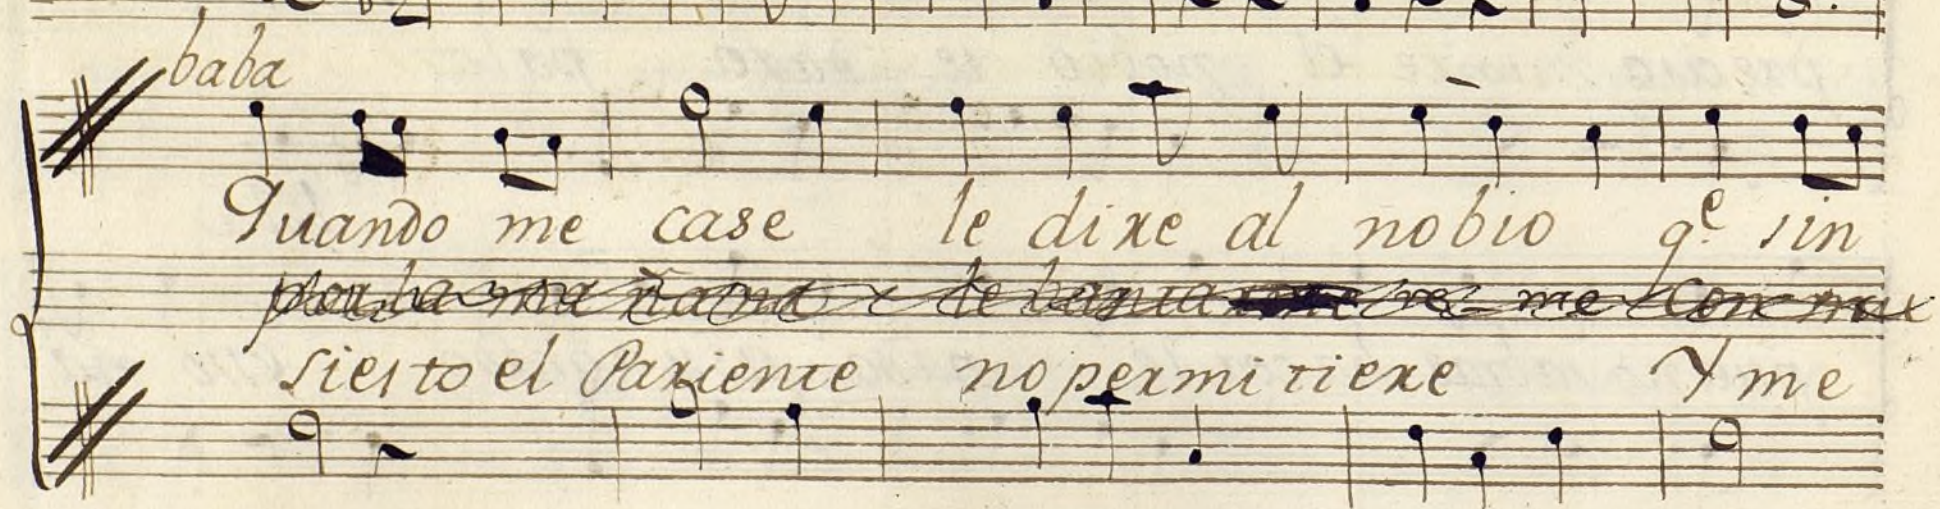 baba
Quando me case le dixe al nobio q.e sin
por la mañana
siesto el Pariente no permitiere Y me